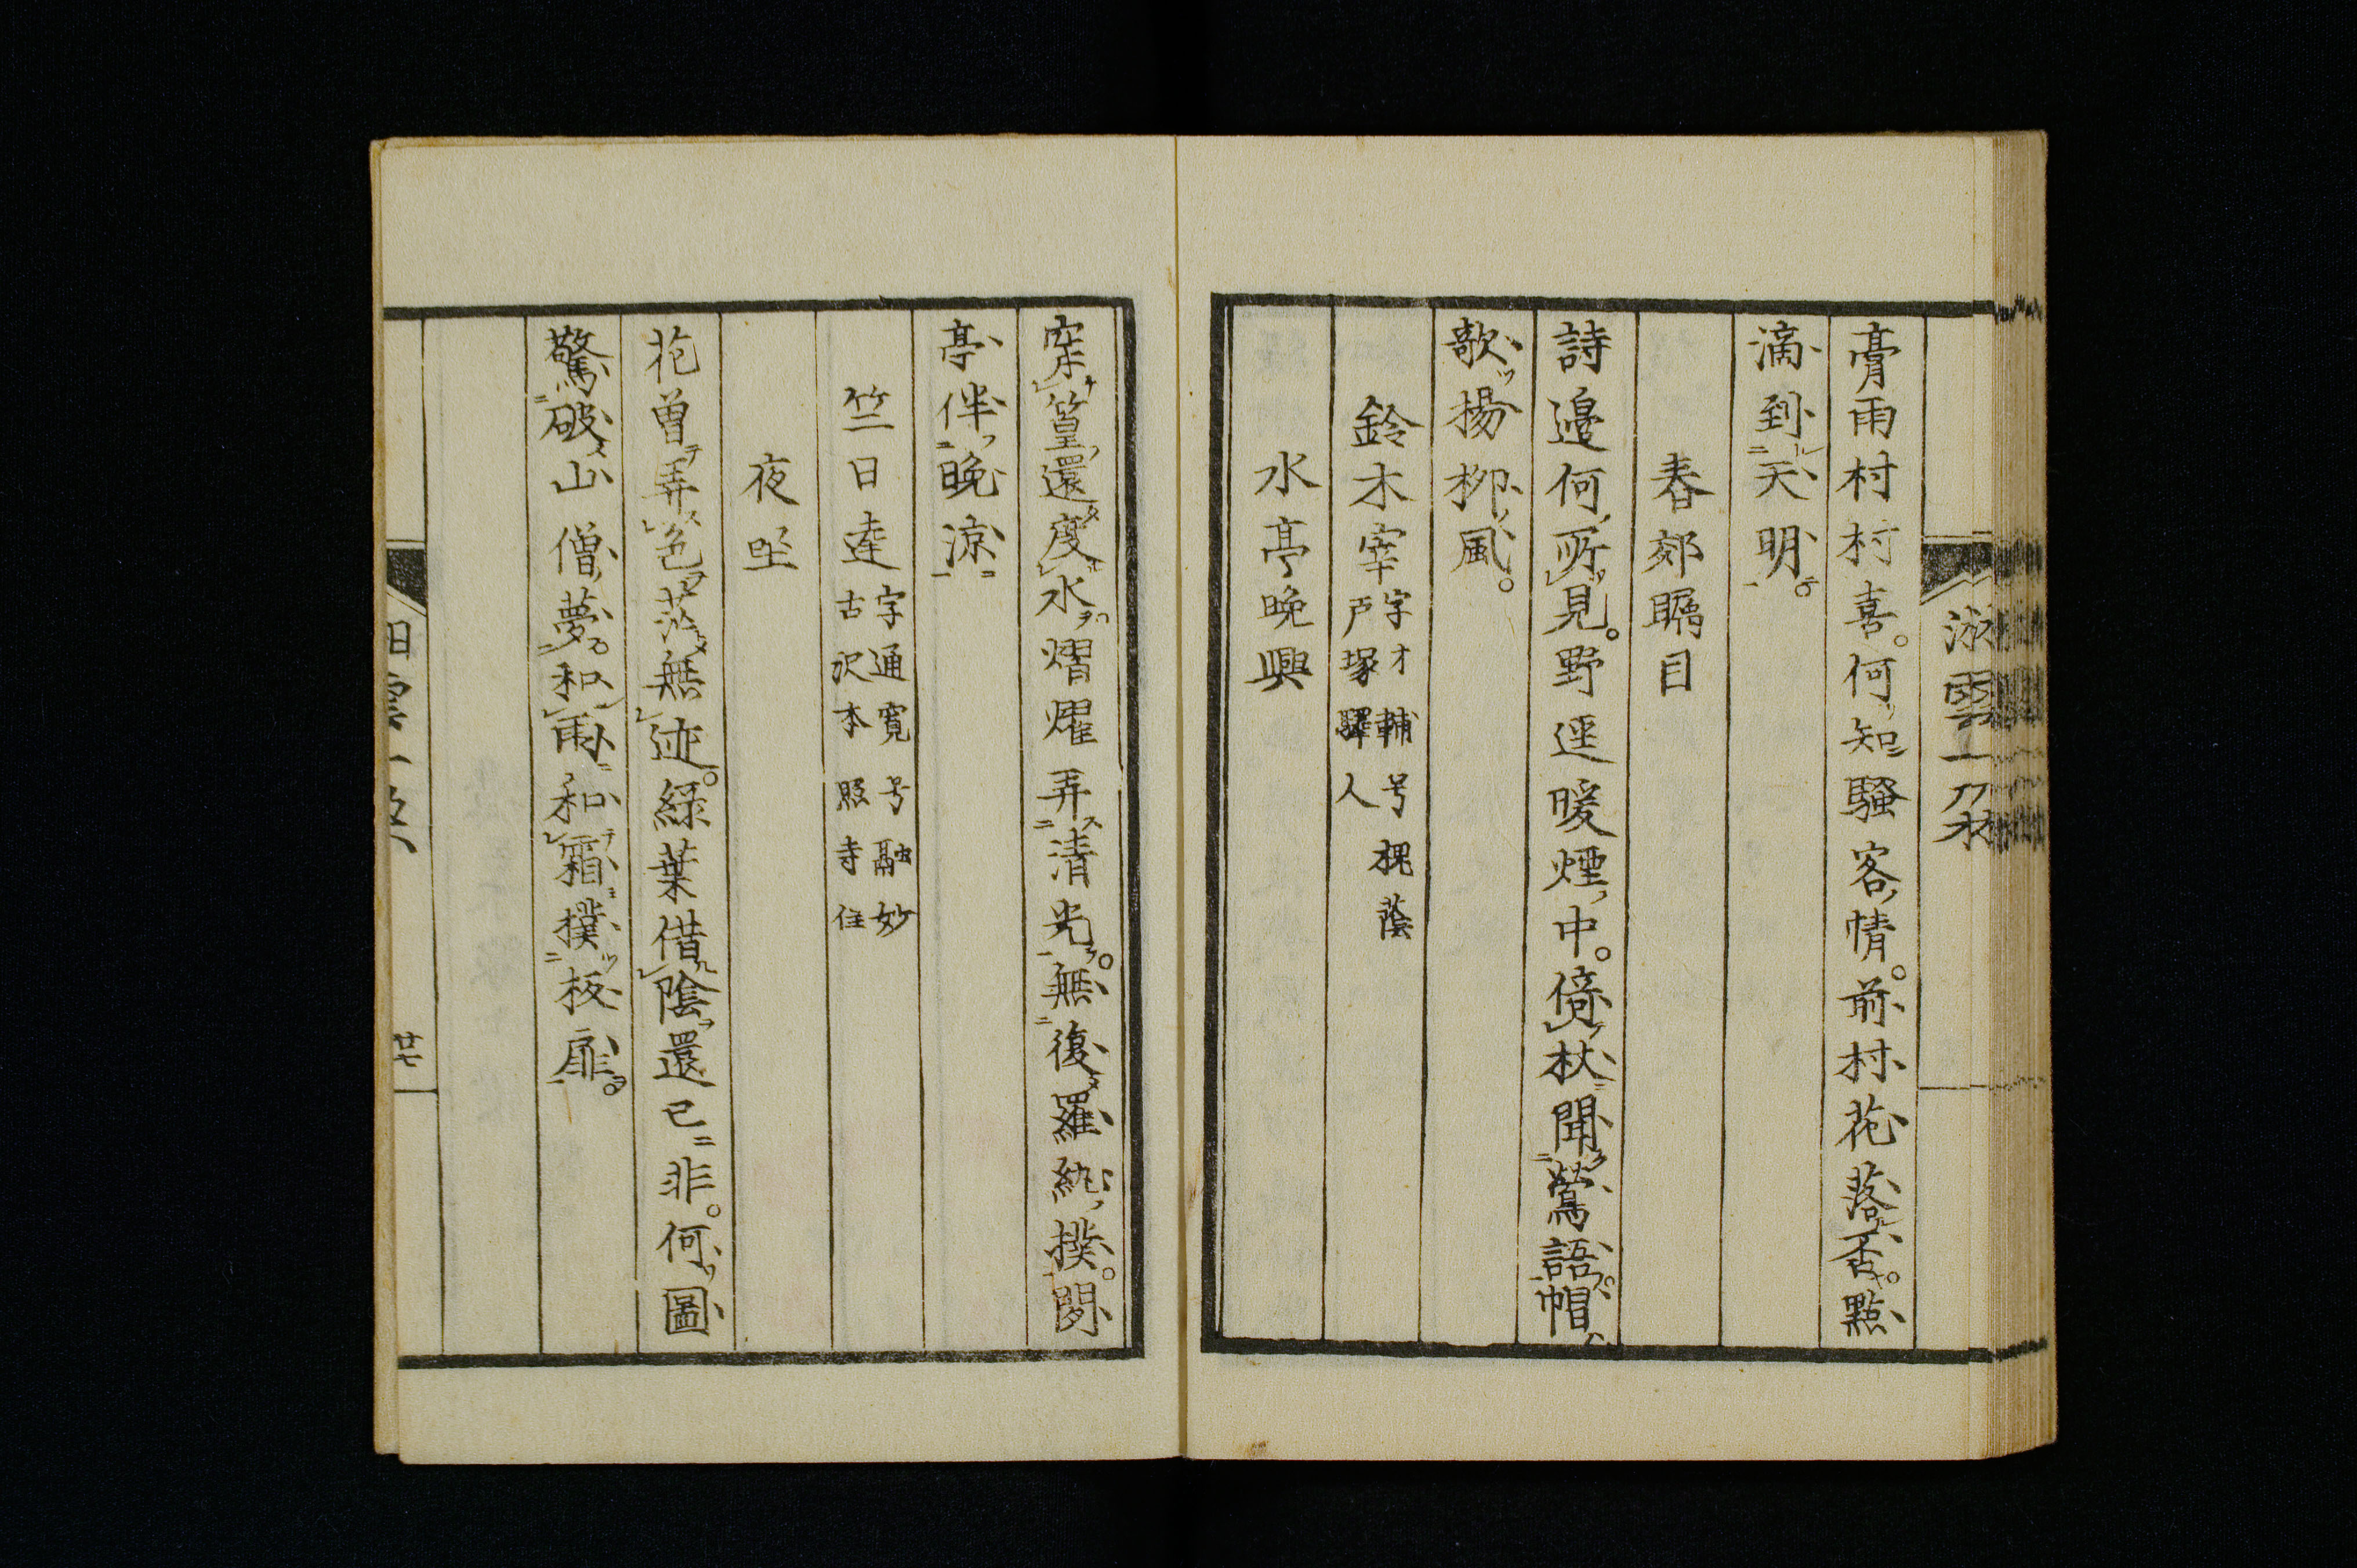 膏雨村村喜。何知騷客情。前村花落否。點
滴到天明。
春郊矚目
詩邉何所見。野逕暖煙中。倚杖聞鶯語。帽
欹楊柳風。
鈴木宰
字才輔号槐蔭
戸塚驛人
水亭晩興
穿篁還度水。熠燿弄清光。無復羅紈撲。閑
亭伴晩涼
竺日達
字通寛号融妙
古沢本照寺住
夜坐
花曽弄色落無迹。緑葉借陰還已非。何圖
驚破山僧夢。和雨和霜撲板扉。
廿七